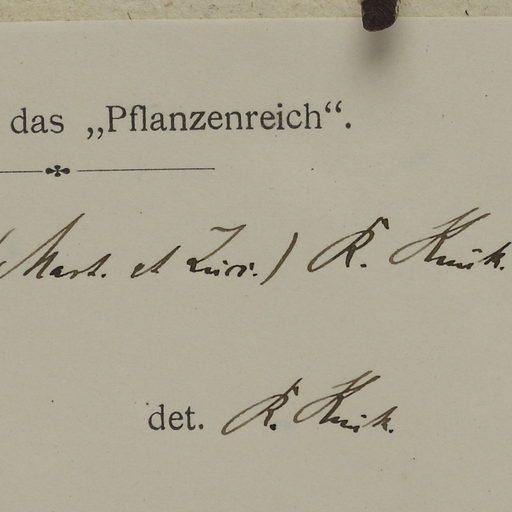 das „Pflanzenreich“.
(Mart. et Zucc.) R. Knuth.
det. R. Knuth.